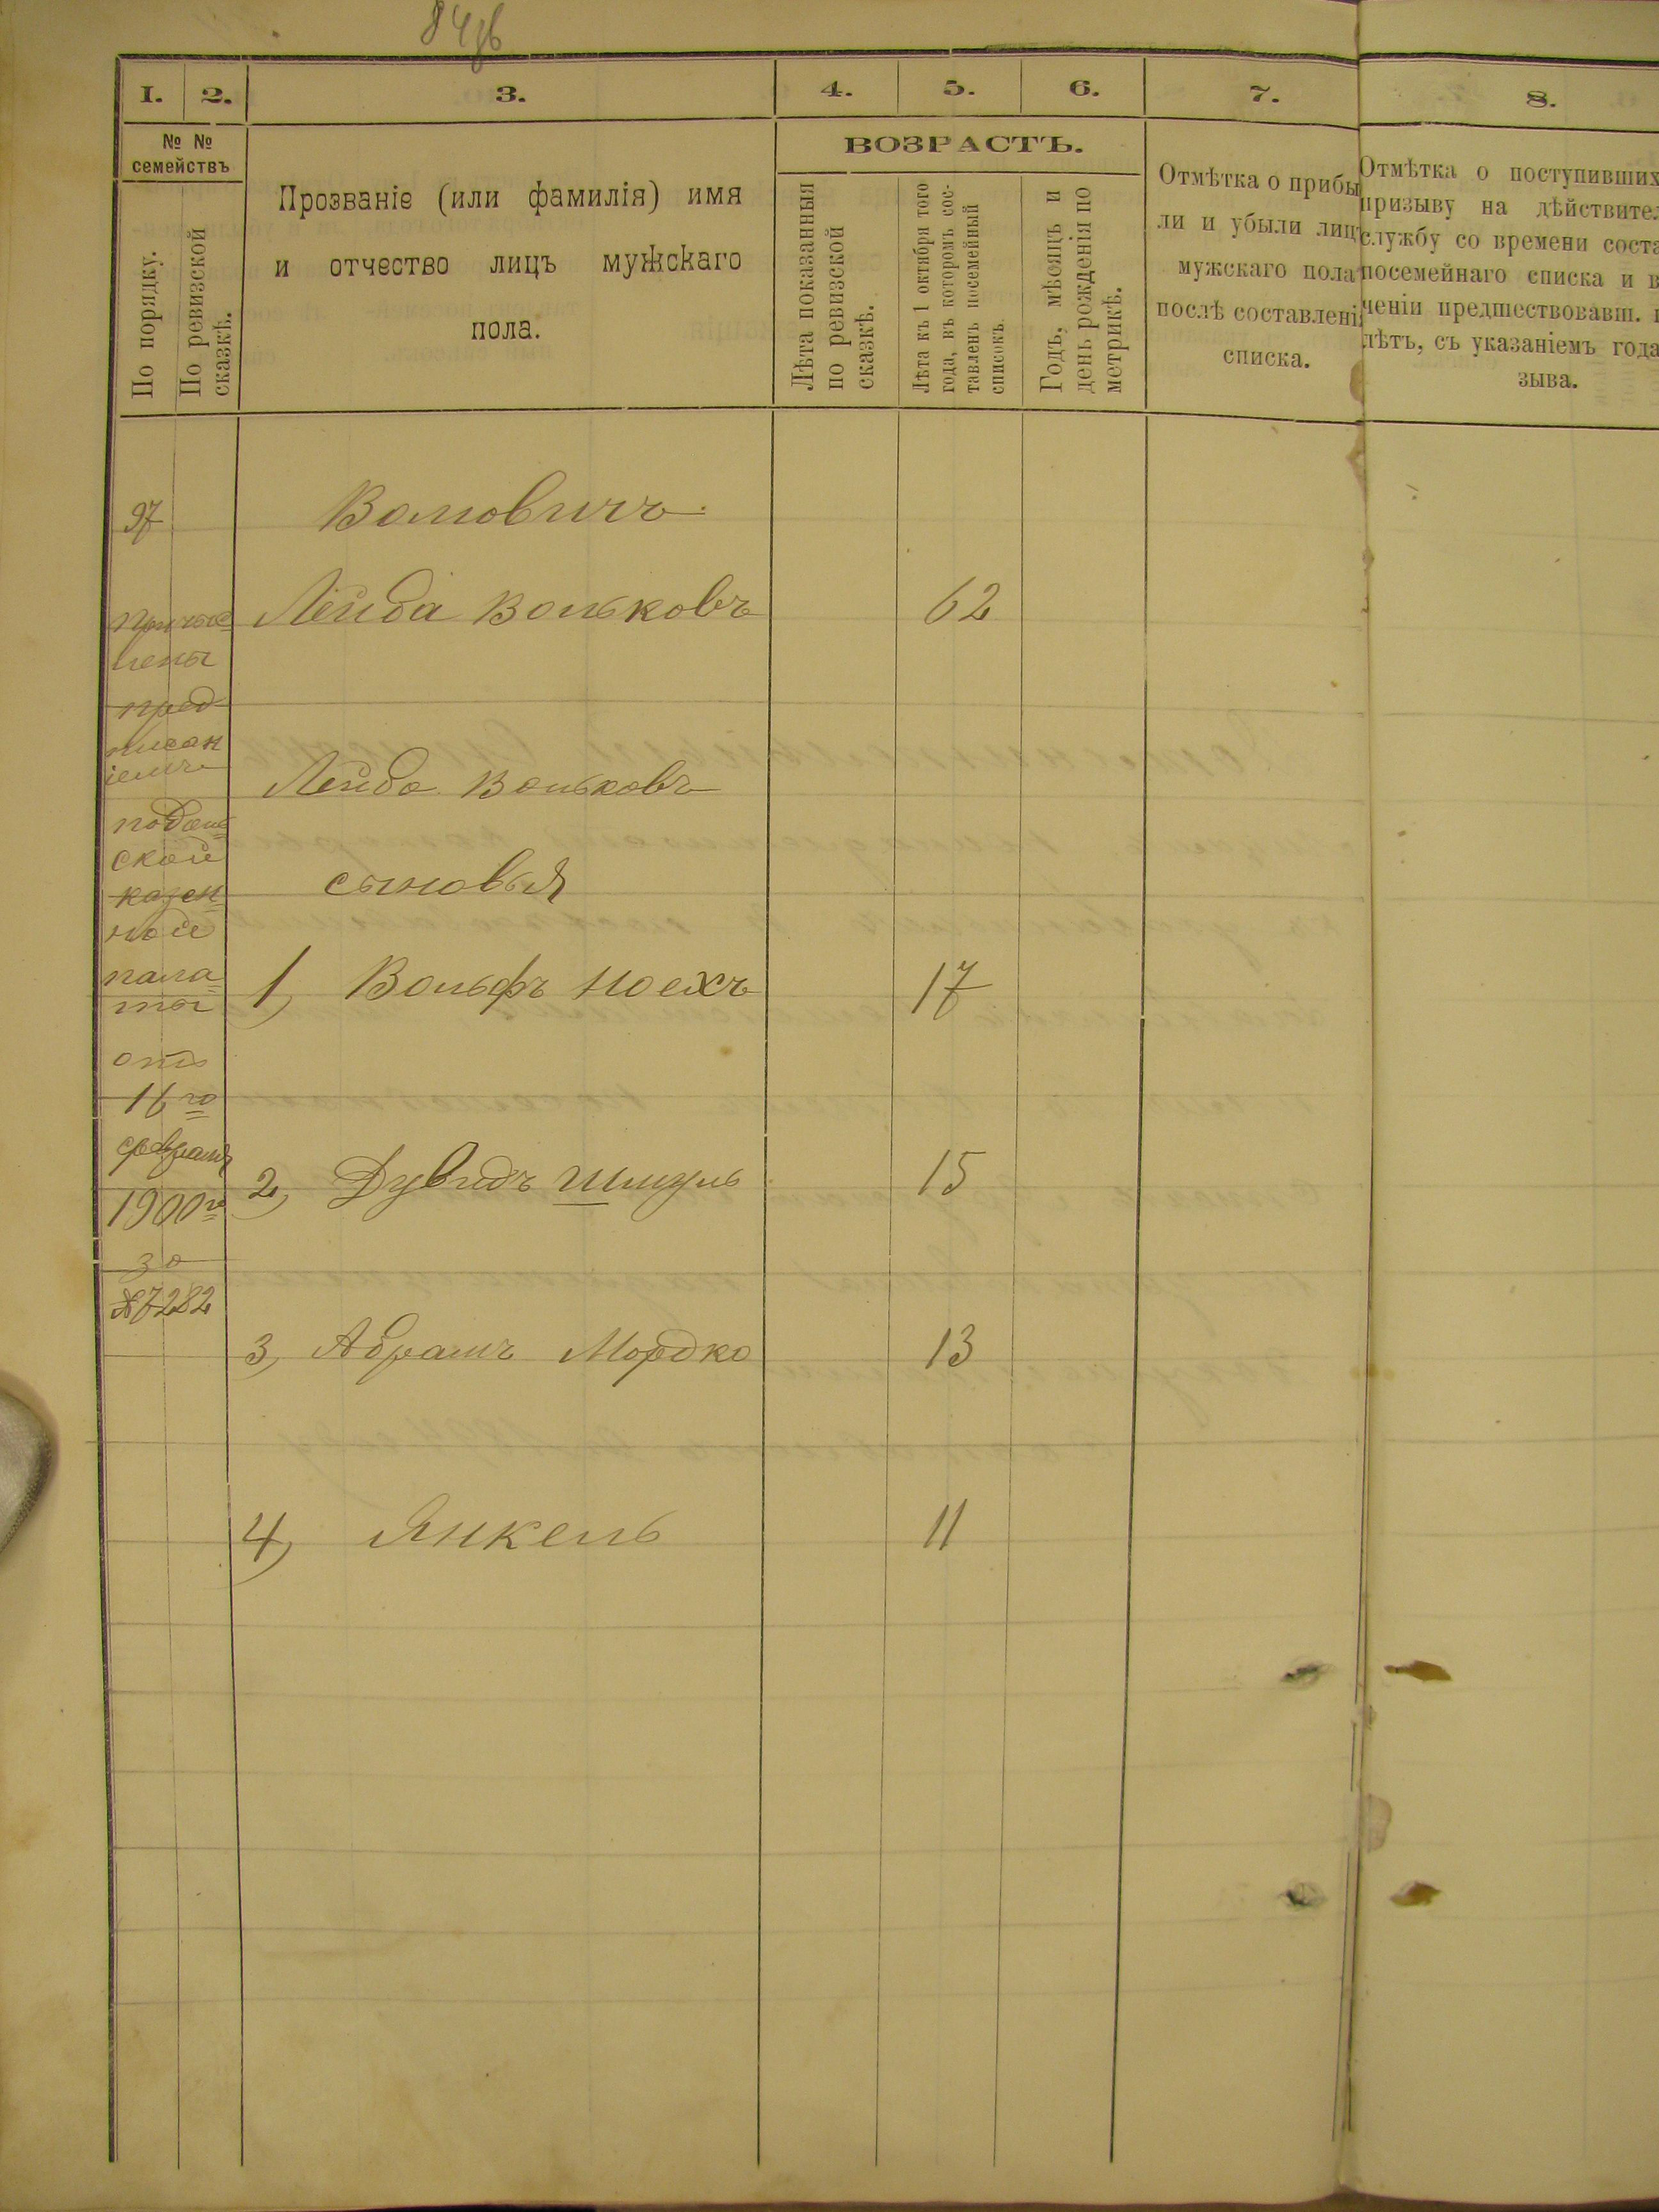 84об
1. 2. 3. 4. 5. 6. 7. 8.
№ № семействъ
По порядку.
По ревизской сказкѣ.
Прозваніе (или фамилія) имя
и отчество лицъ мужскаго
пола.
ВОЗРАСТЪ.
Лѣта показанныя
по ревизской
сказкѣ.
Лѣта къ 1 октября того
года, въ которомъ сос-
тавленъ посемейный
списокъ.
Годъ, мѣсяцъ и
день рожденія по
метрикѣ.
Отмѣтка о прибы
ли и убыли лицъ
мужскаго пола
послѣ составлені
списка.
Отмѣтка о поступивших
призыву на дѣйствител
службу со времени соста
посемейнаго списка и в
ченіи предшествовавш. 
лѣтъ, съ указаніемъ года
зыва.
97
Воловичъ.
Лейба Вольковъ 62
причис=
лены
пред
писан
іемъ
Лейба Вольковъ
подоль=
ской
сыновья
казен=
ной
пала=
ты
1, Вольфъ Ноехъ 17
отъ
16го
февраля
2, Дувидъ Шмуль 15
1900го
за
№7282
3, Абрамъ Мордко 13
4, Янкель 11